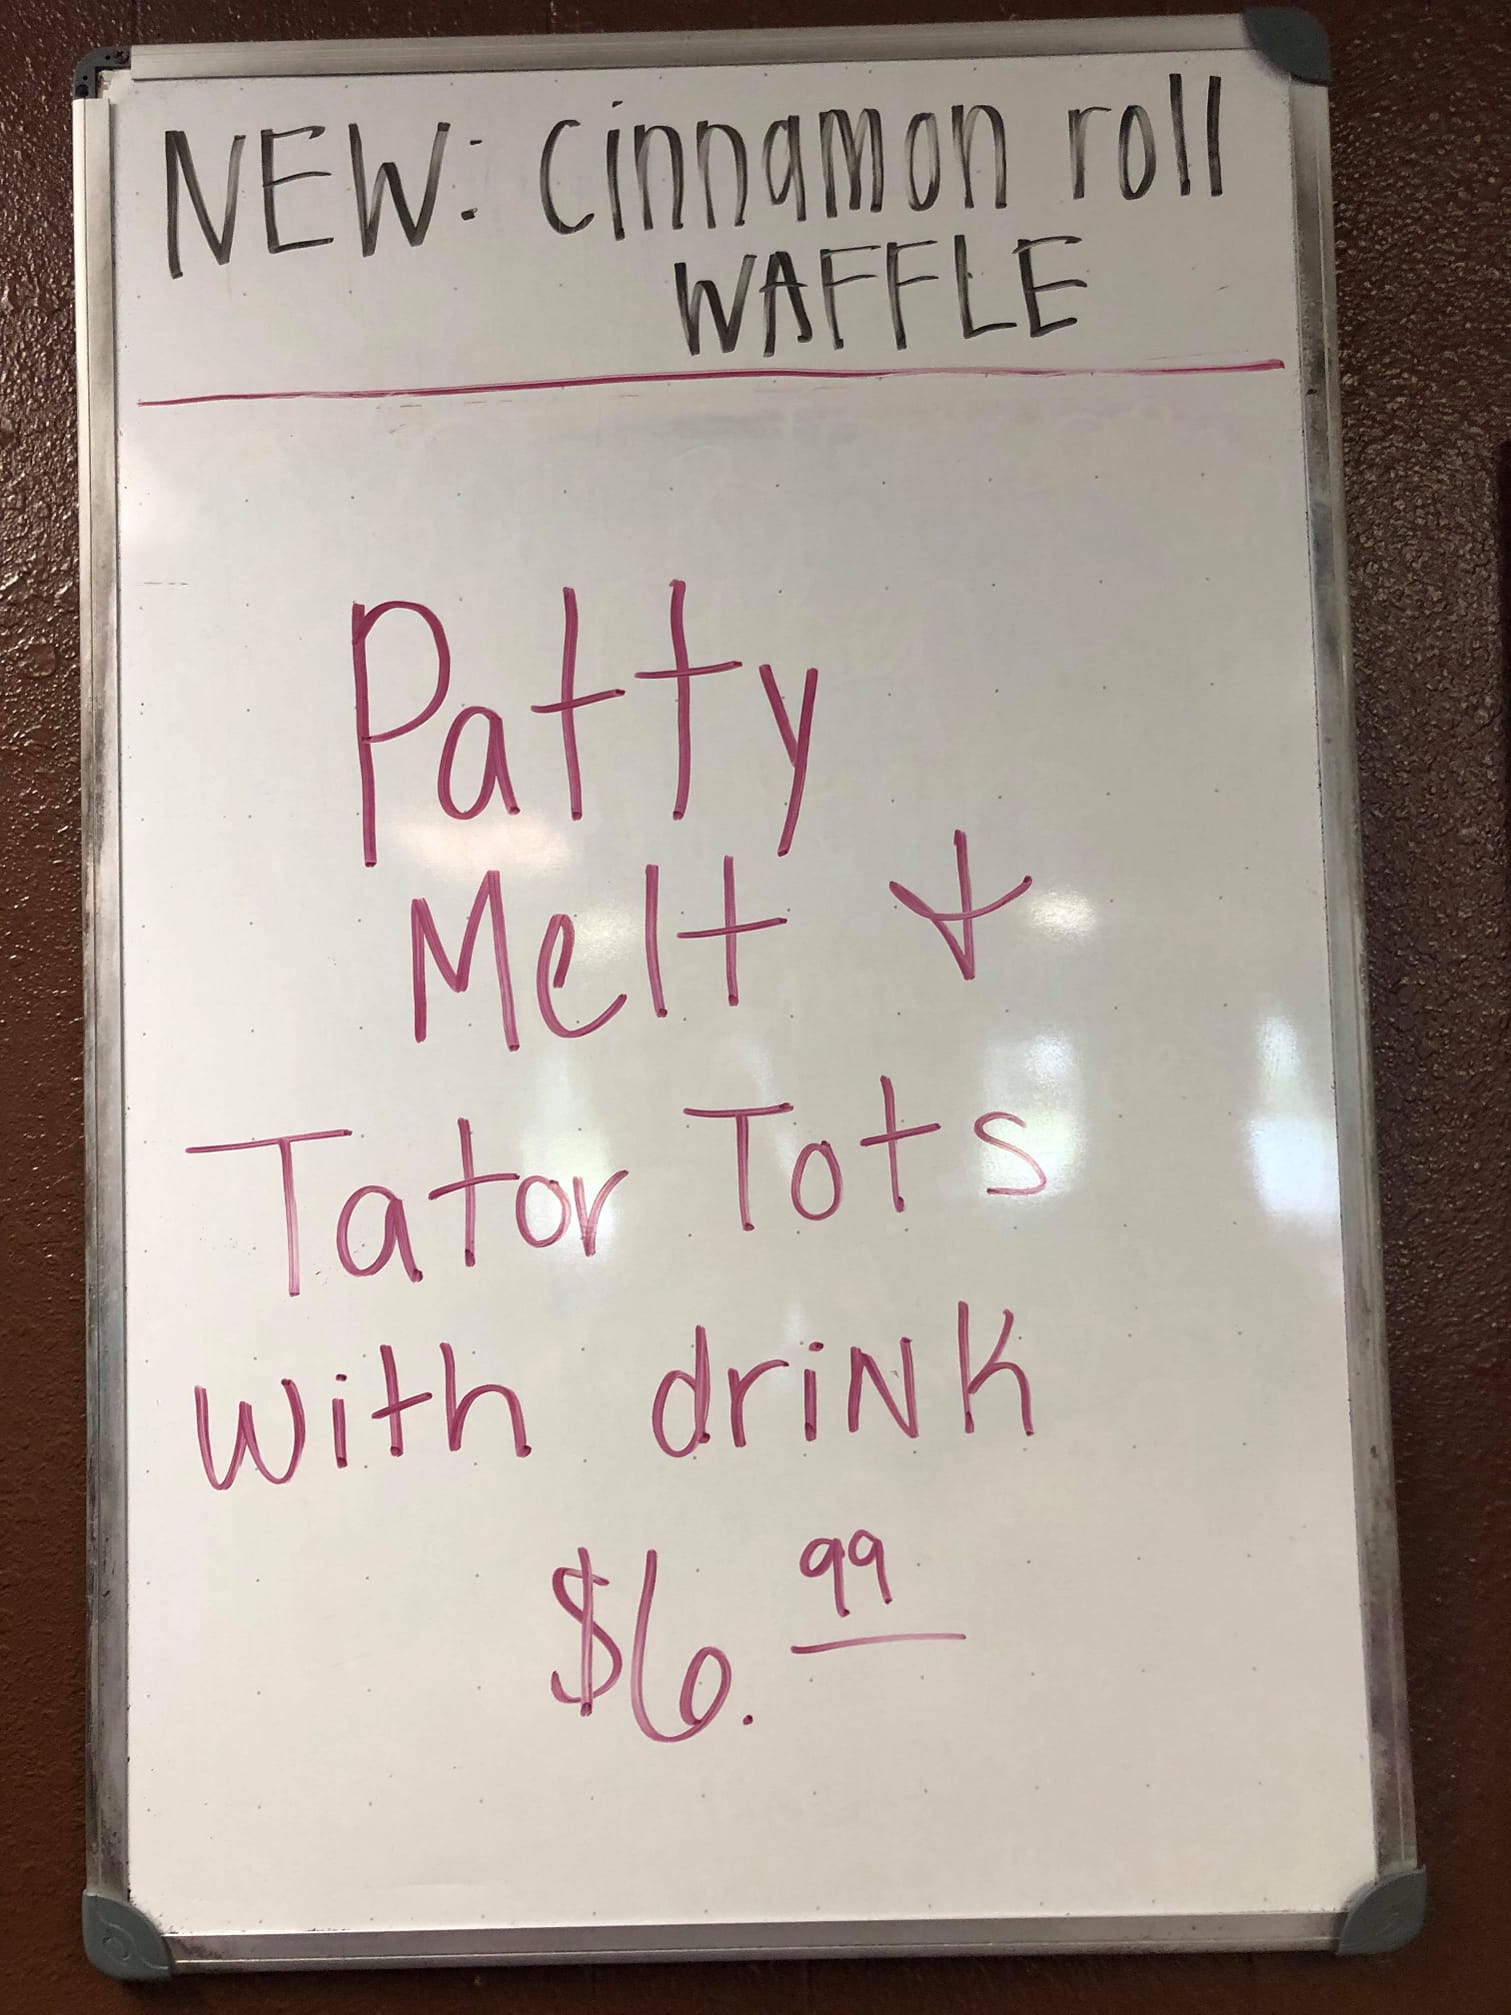 NEW: Cinnamon roll
WAFFLE
Patty
Melt &
Tator Tots
with drink
$6.99